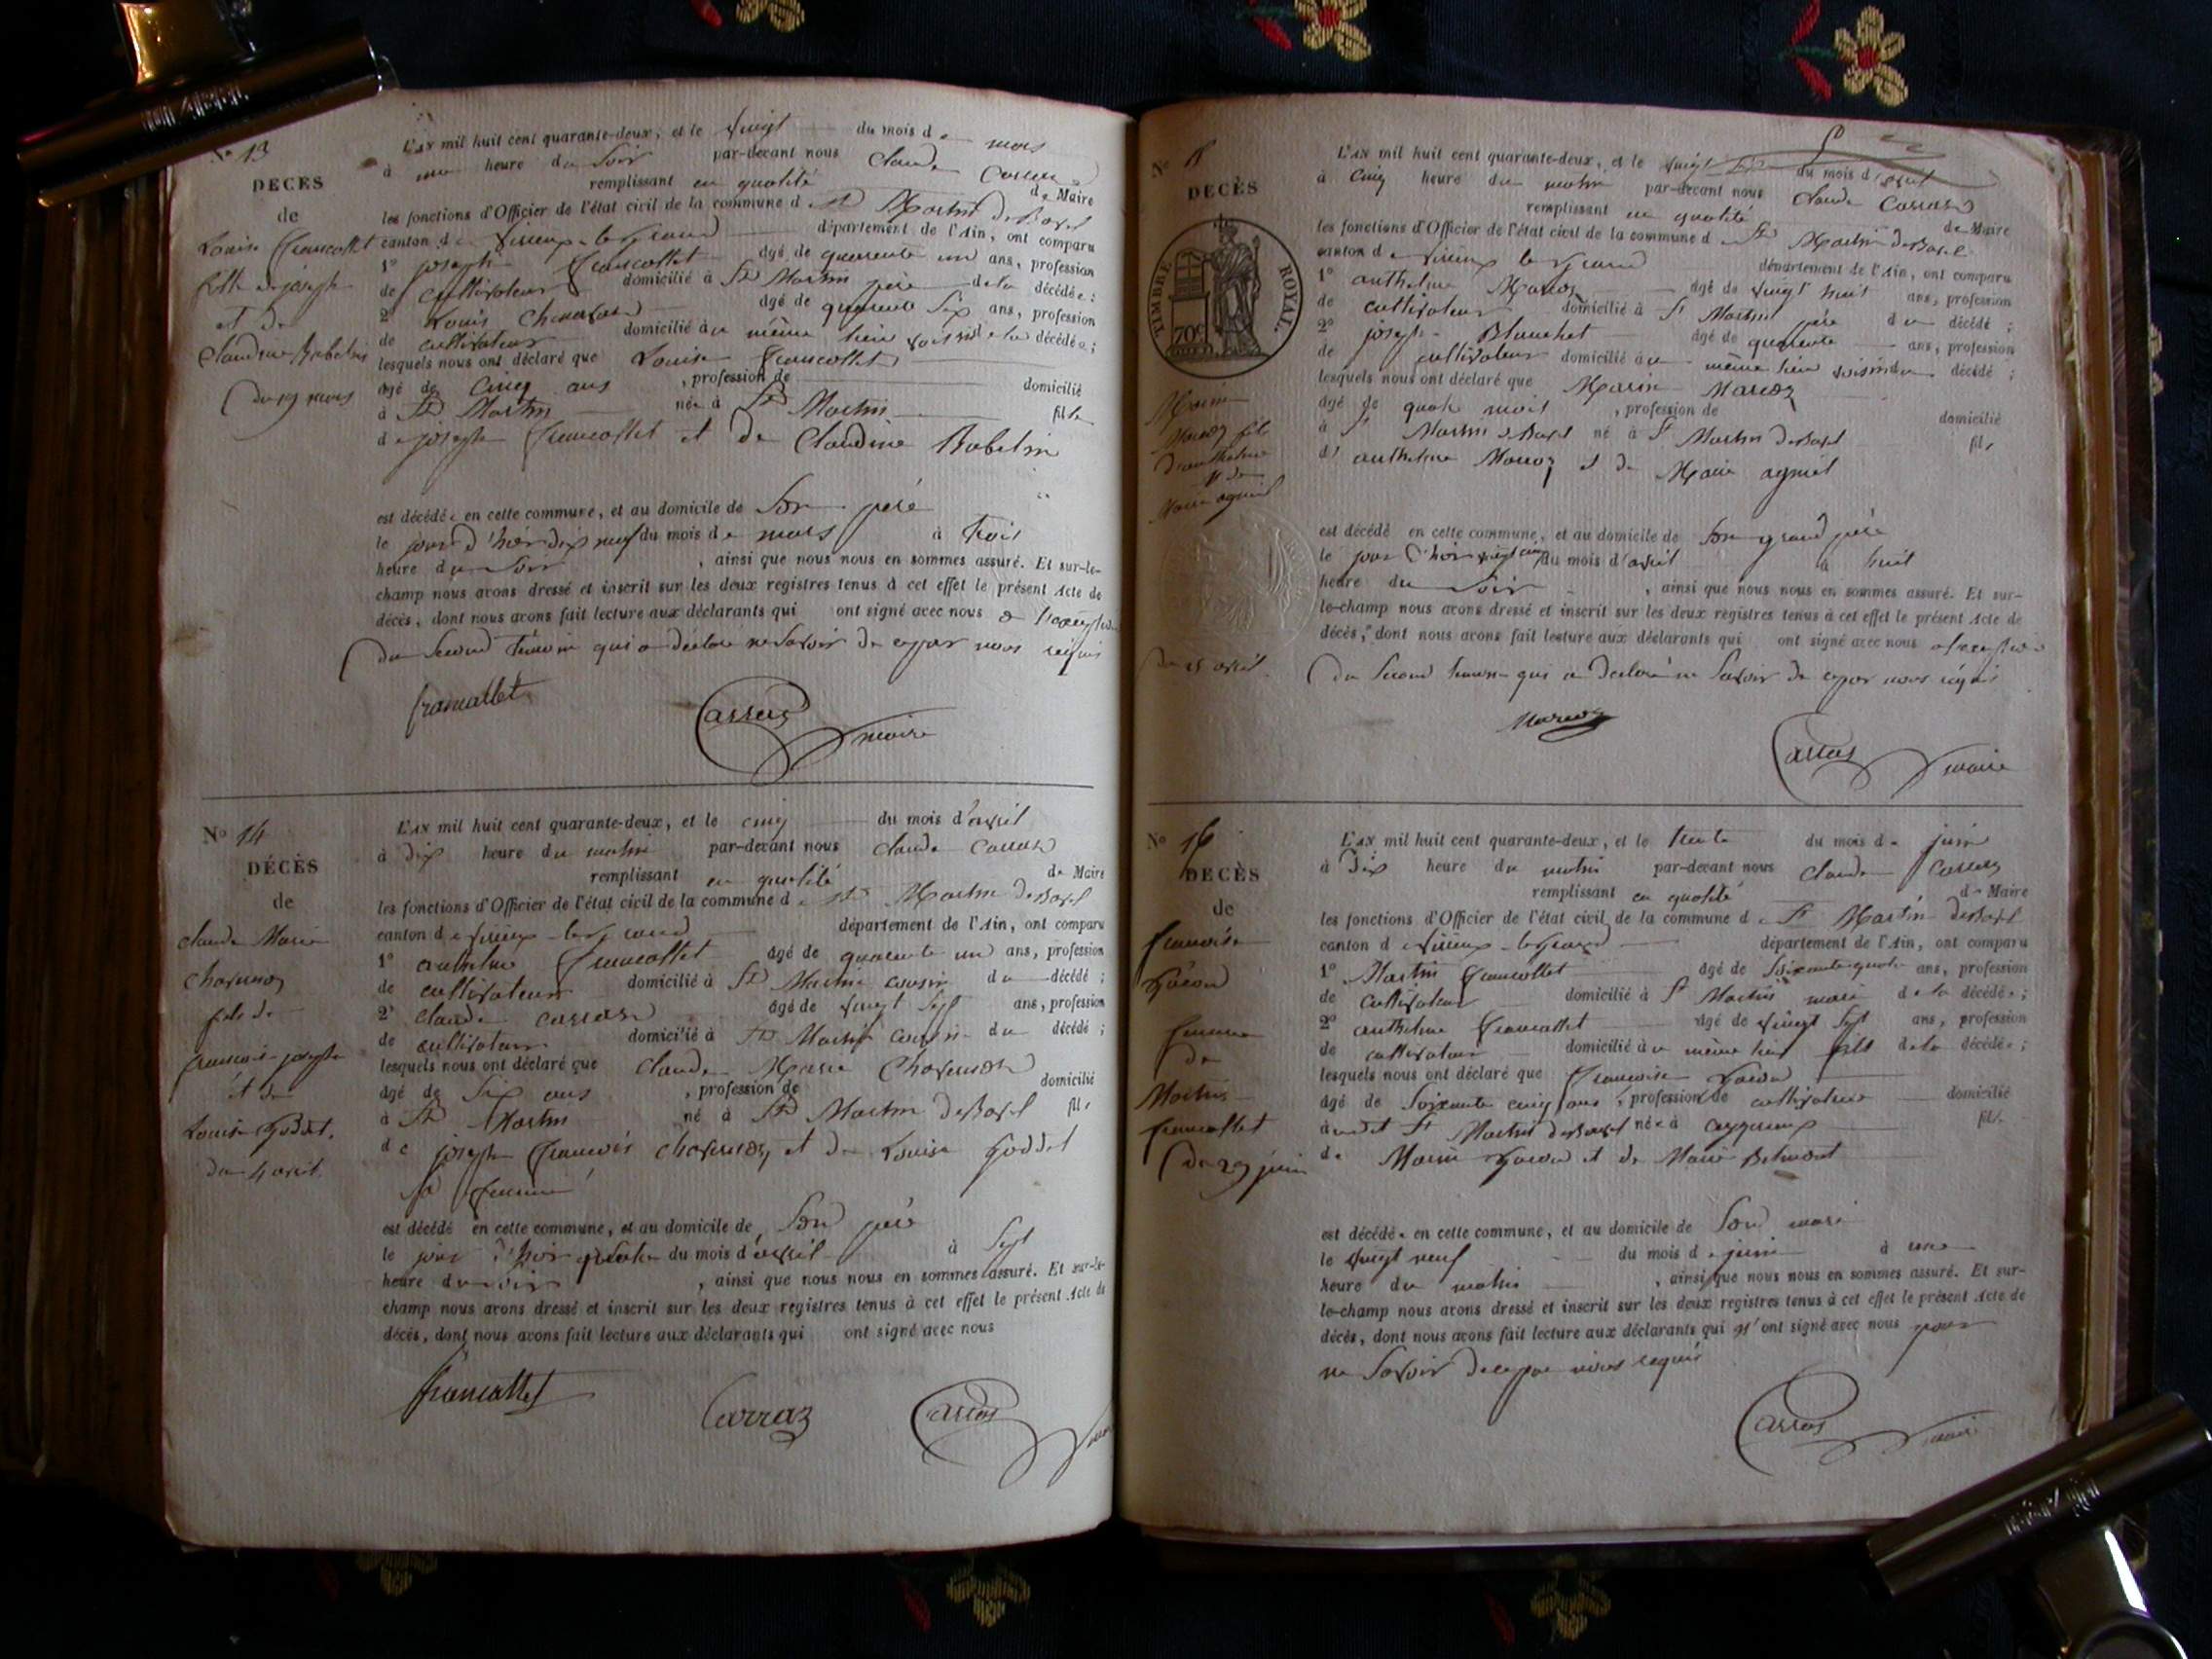 No 13
DECÈS
de
Louise francollet
fille de joseph
et de
Claudine Babelin
du 19 mars
L'AN mil huit cent quarante-deux, et le vingt du mois de mars
à une heure du soir par-devant nous Claude Carraz
remplissant en qualité de Maire
les fonctions d'Officier de l'état civil de la commune de St Martin de Bavel
canton de virieux-le-grand département de l'Ain, ont comparu
1o joseph francollet âgé de quarente un ans, profession
de cultivateur domicilié à St Martin père de la décédée ;
2o Louis âgé de quarente six ans, profession
de cultivateur domicilié au même lieu voisin de la décédée ;
lesquels nous ont déclaré que Louise francollet
âgé de cinq ans , profession de domicilié
à St Martin née à St Martin fille
de joseph francollet et de Claudine Babelin
est décédée en cette commune, et au domicile de son père
le jour d'hier dix neuf du mois de mars à trois
heure du soir , ainsi que nous nous en sommes assuré. Et sur-le-
champ nous avons dressé et inscrit sur les deux registres tenus à cet effet le présent Acte de
décès, dont nous avons fait lecture aux déclarants qui ont signé avec nous a l'exeption
du second témoin qui a déclaré ne savoir de ce par nous requis
francollet
Carraz maire
No 14
DÉCÈS
de
claude Marie
Chavenoz
fils de
francois joseph
et de
Louise Goddet.
du 4 avril.
L'AN mil huit cent quarante-deux, et le cinq du mois d'avril
à dix heure du matin par-devant nous claude Carraz
remplissant en qualité de Maire
les fonctions d'Officier de l'état civil de la commune de St Martin de Bavel
canton de virieux-le-grand département de l'Ain, ont comparu
1o anthelme francollet âgé de quarente un ans, profession
de cultivateur domicilié à St Martin cousin du décédé ;
2o claude carraz âgé de vingt sept ans, profession
de cultivateur domicilié à St Martin cousin du décédé ;
lesquels nous ont déclaré que claude Marie Chavenoz
âgé de six ans , profession de domicilié
à St Martin né à St Martin de Bavel fils
de joseph francois chavenoz et de Louise Goddet
sa femme
est décédé en cette commune, et au domicile de son père
le jour d'hier quatre du mois d'avril à sept
heure du soir , ainsi que nous nous en sommes assuré. Et sur-le-
champ nous avons dressé et inscrit sur les deux registres tenus à cet effet le présent Acte de
décès, dont nous avons fait lecture aux déclarants qui ont signé avec nous
francollet
Carraz
Carraz
No 15
DECÈS
TIMBRE ROYAL.
70c
Marin
Marcoz fils
d'anthelme
et de
Marie agniel
du 25 avril.
L'AN mil huit cent quarante-deux, et le vingt six du mois d'avril
à cinq heure du matin par-devant nous Claude Carraz
remplissant en qualité de Maire
les fonctions d'Officier de l'état civil de la commune de St Martin de Bavel
canton de virieux le grand département de l'Ain, ont comparu
1o anthelme Marcoz âgé de vingt huit ans, profession
de cultivateur domicilié à St Martin père du décédé ;
2o joseph Blanchet âgé de quarente ans, profession
de cultivateur domicilié au même lieu voisin du décédé ;
lesquels nous ont déclaré que Marin Marcoz
âgé de quatre mois , profession de domicilié
à St Martin de Bavel né à St Martin de Bavel fils
d' anthelme Marcoz et de Marie agniel
est décédé en cette commune, et au domicile de son grand père
le jour d'hier vingt cinq du mois d'avril à huit
heure du soir , ainsi que nous nous en sommes assuré. Et sur-
le-champ nous avons dressé et inscrit sur les deux registres tenus à cet effet le présent Acte de
décès, dont nous avons fait lecture aux déclarants qui ont signé avec nous a l'exeption
du second temoin qui a déclaré ne savoir de ce par nous requis
Marcoz
Carraz maire
No 16
DECÈS
de
francoise
femme
de
Martin
francollet
du 29 juin
L'AN mil huit cent quarante-deux, et le trente du mois de juin
à dix heure du matin par-devant nous Claude Carraz
remplissant en qualité de Maire
les fonctions d'Officier de l'état civil de la commune de St Martin de Bavel
canton de virieux-le-grand département de l'Ain, ont comparu
1o Martin francollet âgé de soixante quatre ans, profession
de cultivateur domicilié à St Martin mari de la décédée ;
2o anthelme francollet âgé de vingt sept ans, profession
de cultivateur domicilié au même lieu fils de la décédée ;
lesquels nous ont déclaré que francoise
âgé de soixante cinq ans , profession de cultivateur domicilié
audit St Martin de Bavel née à Ceyzerieux fille
de Marin et de Marie Belmont
est décédée en cette commune, et au domicile de son mari
le vingt neuf du mois de juin à une
heure du matin , ainsi que nous nous en sommes assuré. Et sur-
le-champ nous avons dressé et inscrit sur les deux registres tenus à cet effet le présent Acte de
décès, dont nous avons fait lecture aux déclarants qui n'ont signé avec nous pour
ne savoir de ce par nous requis
Carraz maire